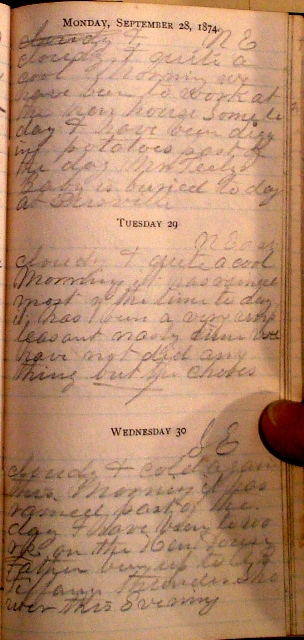 MONDAY, SEPTEMBER 28, 1874.
cloudy & N E
cloudy & quite a
cool morning we
have been to work at
the hen house some to
day & have been digg
ing potatoes part of
the day Mr Teels
Baby is buried to day
at
TUESDAY 29
N E
cloudy & quite a cool
Morning it has rained
most of the time to day
it has been a very unp
leasant nasty time we
have not did any
thing but the chores
WEDNESDAY 30
E
cloudy & cold again
this Morning it has
rained part of the
day I have been to wo
rk on the Hen House
Father
Thunder sho
wer this Evening